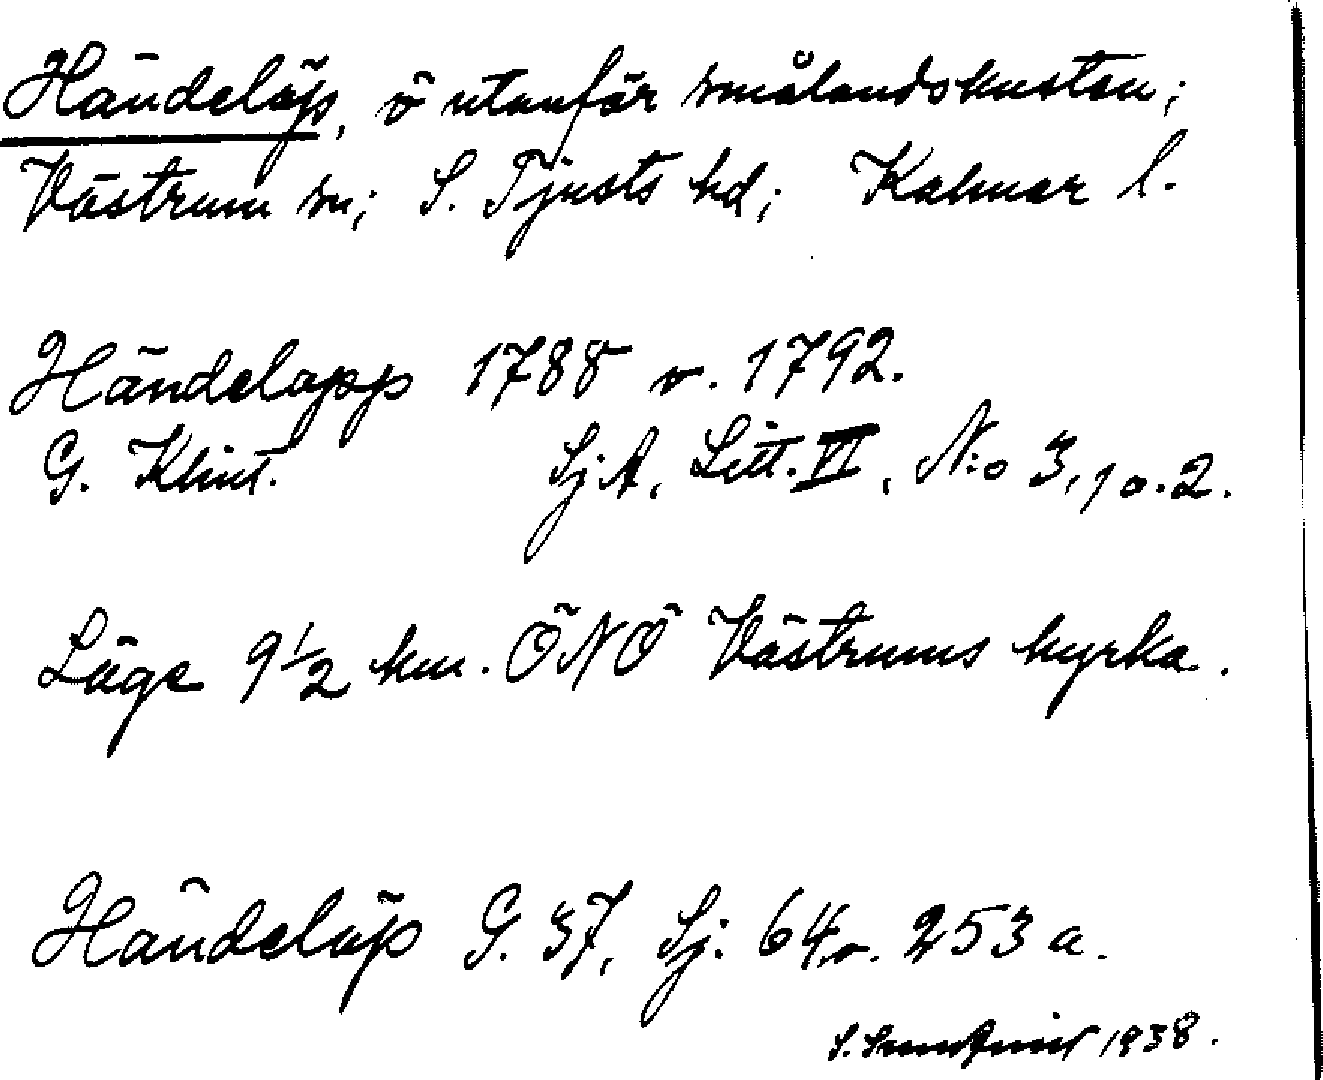 Händelöp, ö utanför smålandskusten;
Västrum sn; S. Tjusts hd; Kalmar l.
Händelöpp 1788 o. 1792.
G. Klint. Sj.A, Litt. VI, N:o 3, 1 o. 2.
Läge 9 1/2 km. ÖNÖ Västrums kyrka.
Händelöp G. 37, Sj. 64 o. 253 a.
S. 1938.